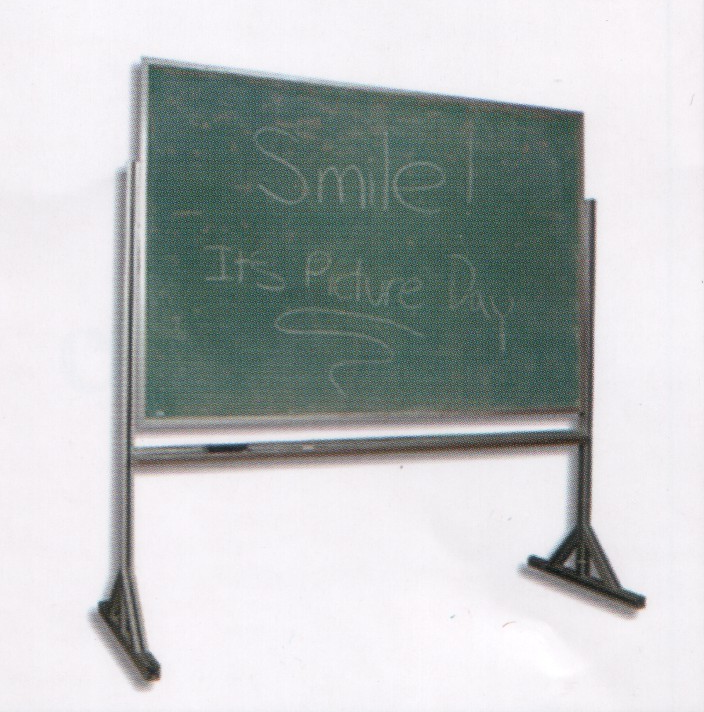 Smile!
It's Picture Day